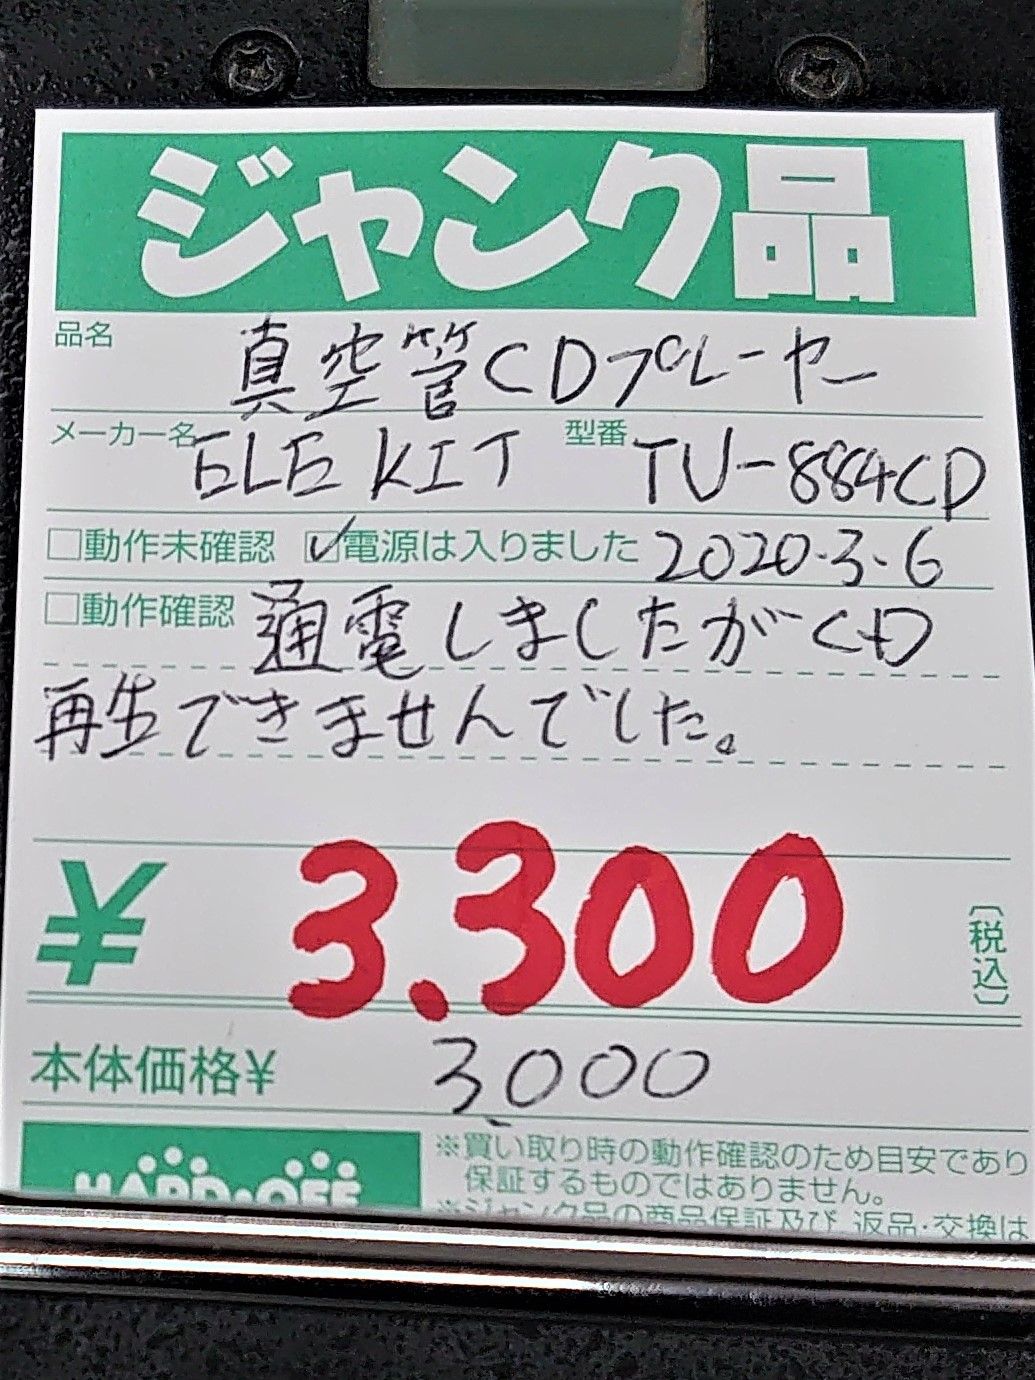 ジャンク品
品名 真空管CDプレーヤー
メーカー名 ELE KIT 型番 TU-884CD
□動作未確認 ☑電源は入りました 2020.3.6
□動作確認 通電しましたがCD
再生できませんでした。
¥ 3.300 〔税込〕
本体価格¥ 3,000
HARD・OFF
※買い取り時の動作確認のため目安であり
保証するものではありません。
※ジャンク品の商品保証及び、返品・交換は